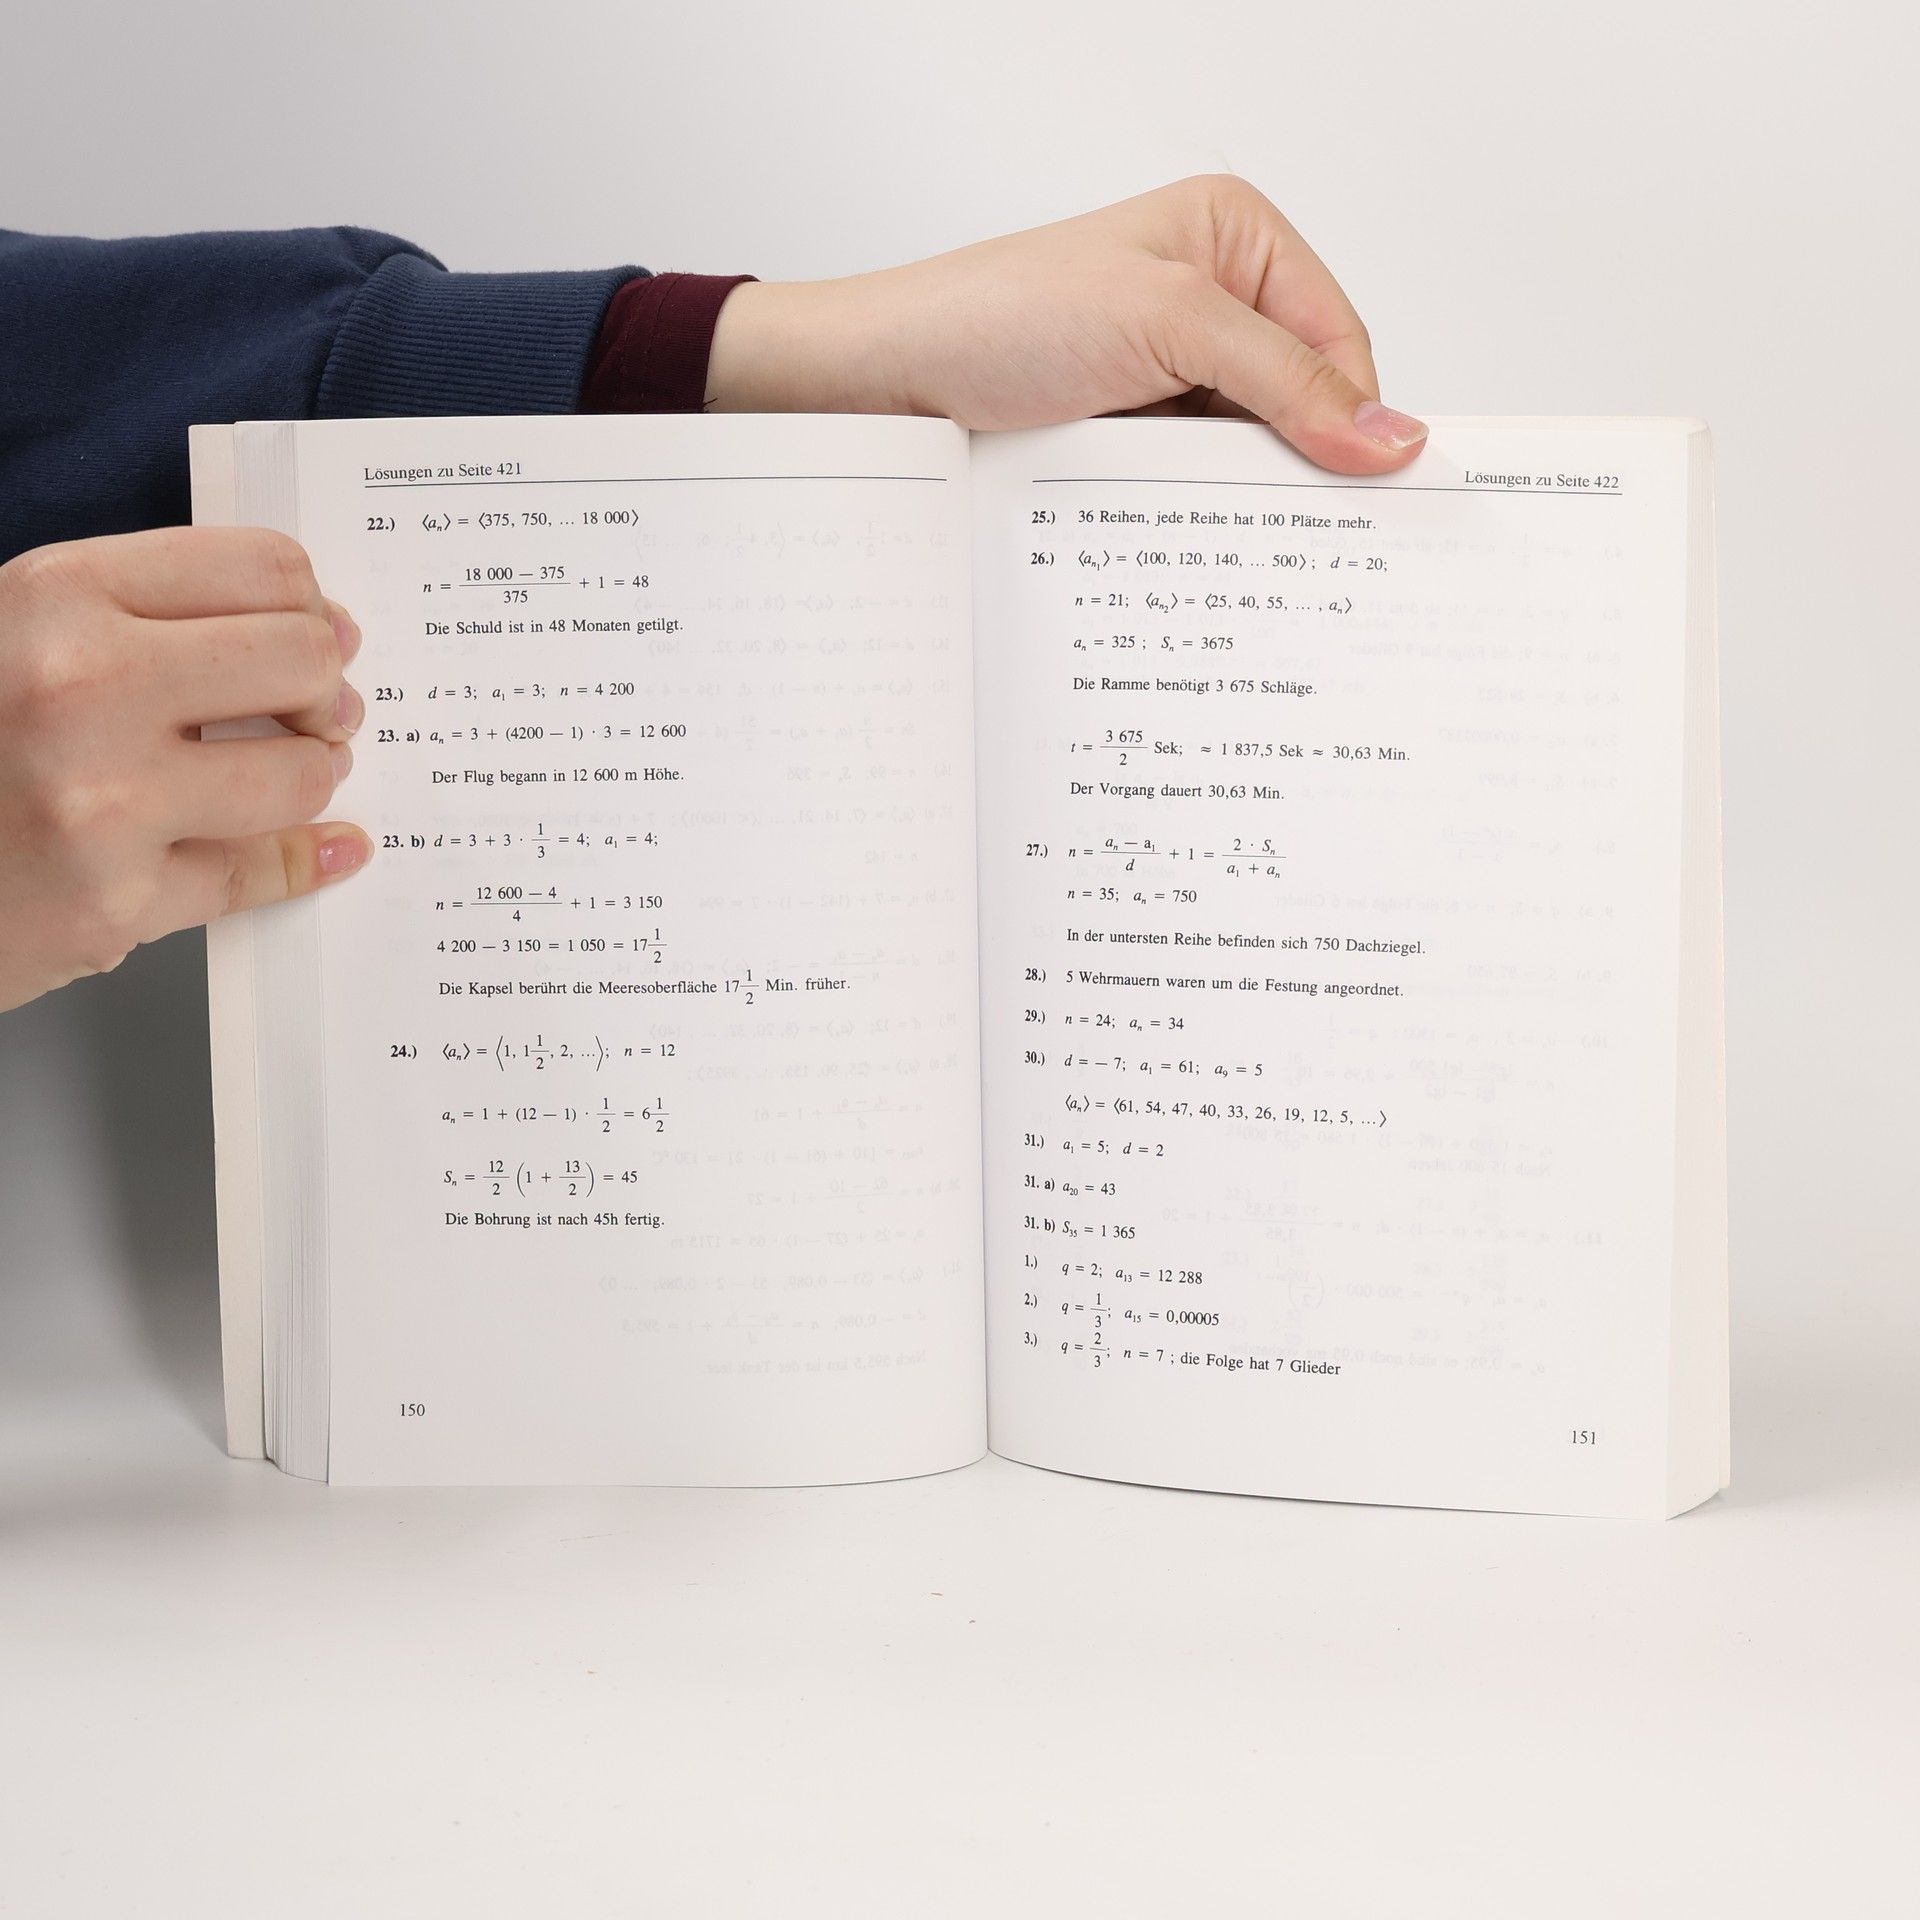 Lösungen zu Seite 421
22.) ⟨aₙ⟩ = ⟨375, 750, … 18 000⟩
n = (18 000 — 375)/375 + 1 = 48
Die Schuld ist in 48 Monaten getilgt.
23.) d = 3; a₁ = 3; n = 4 200
23. a) aₙ = 3 + (4200 — 1) · 3 = 12 600
Der Flug begann in 12 600 m Höhe.
23. b) d = 3 + 3 · 1/3 = 4; a₁ = 4;
n = (12 600 — 4)/4 + 1 = 3 150
4 200 — 3 150 = 1 050 = 17 1/2
Die Kapsel berührt die Meeresoberfläche 17 1/2 Min. früher.
24.) ⟨aₙ⟩ = ⟨1, 1 1/2, 2, …⟩; n = 12
aₙ = 1 + (12 — 1) · 1/2 = 6 1/2
Sₙ = 12/2 (1 + 13/2) = 45
Die Bohrung ist nach 45h fertig.
150
Lösungen zu Seite 422
25.) 36 Reihen, jede Reihe hat 100 Plätze mehr.
26.) ⟨aₙ₁⟩ = ⟨100, 120, 140, … 500⟩; d = 20;
n = 21; ⟨aₙ₂⟩ = ⟨25, 40, 55, … , aₙ⟩
aₙ = 325 ; Sₙ = 3675
Die Ramme benötigt 3 675 Schläge.
t = 3 675/2 Sek; ≈ 1 837,5 Sek ≈ 30,63 Min.
Der Vorgang dauert 30,63 Min.
27.) n = (aₙ — a₁)/d + 1 = (2 · Sₙ)/(a₁ + aₙ)
n = 35; aₙ = 750
In der untersten Reihe befinden sich 750 Dachziegel.
28.) 5 Wehrmauern waren um die Festung angeordnet.
29.) n = 24; aₙ = 34
30.) d = — 7; a₁ = 61; a₉ = 5
⟨aₙ⟩ = ⟨61, 54, 47, 40, 33, 26, 19, 12, 5, …⟩
31.) a₁ = 5; d = 2
31. a) a₂₀ = 43
31. b) S₃₅ = 1 365
1.) q = 2; a₁₃ = 12 288
2.) q = 1/3; a₁₅ = 0,00005
3.) q = 2/3; n = 7 ; die Folge hat 7 Glieder
151